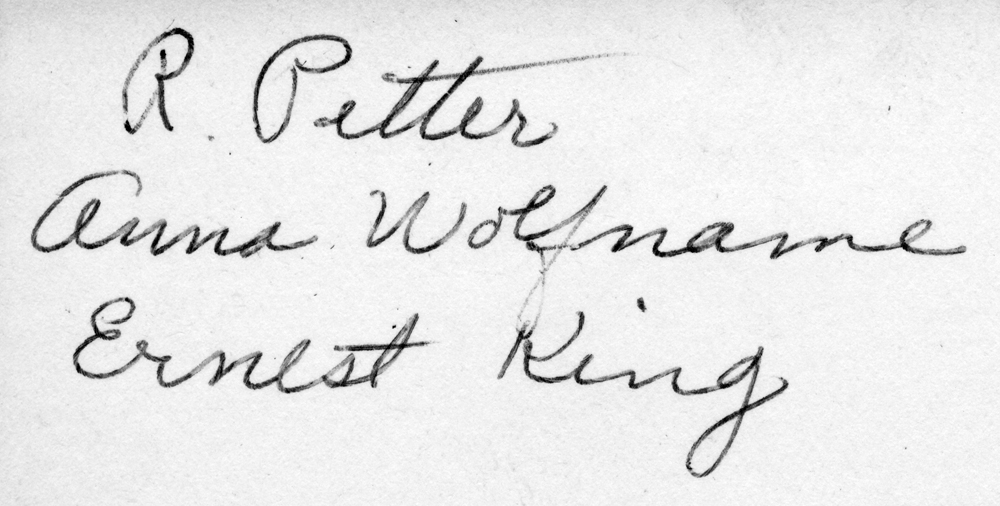 R. Petter
Anna Wolfname
Ernest King